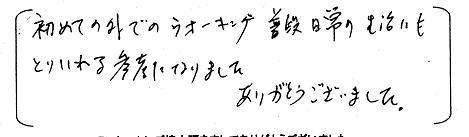 初めての外でのウオーキング 普段日常の生活にも
とりいれる参考になりました
ありがとうございました。